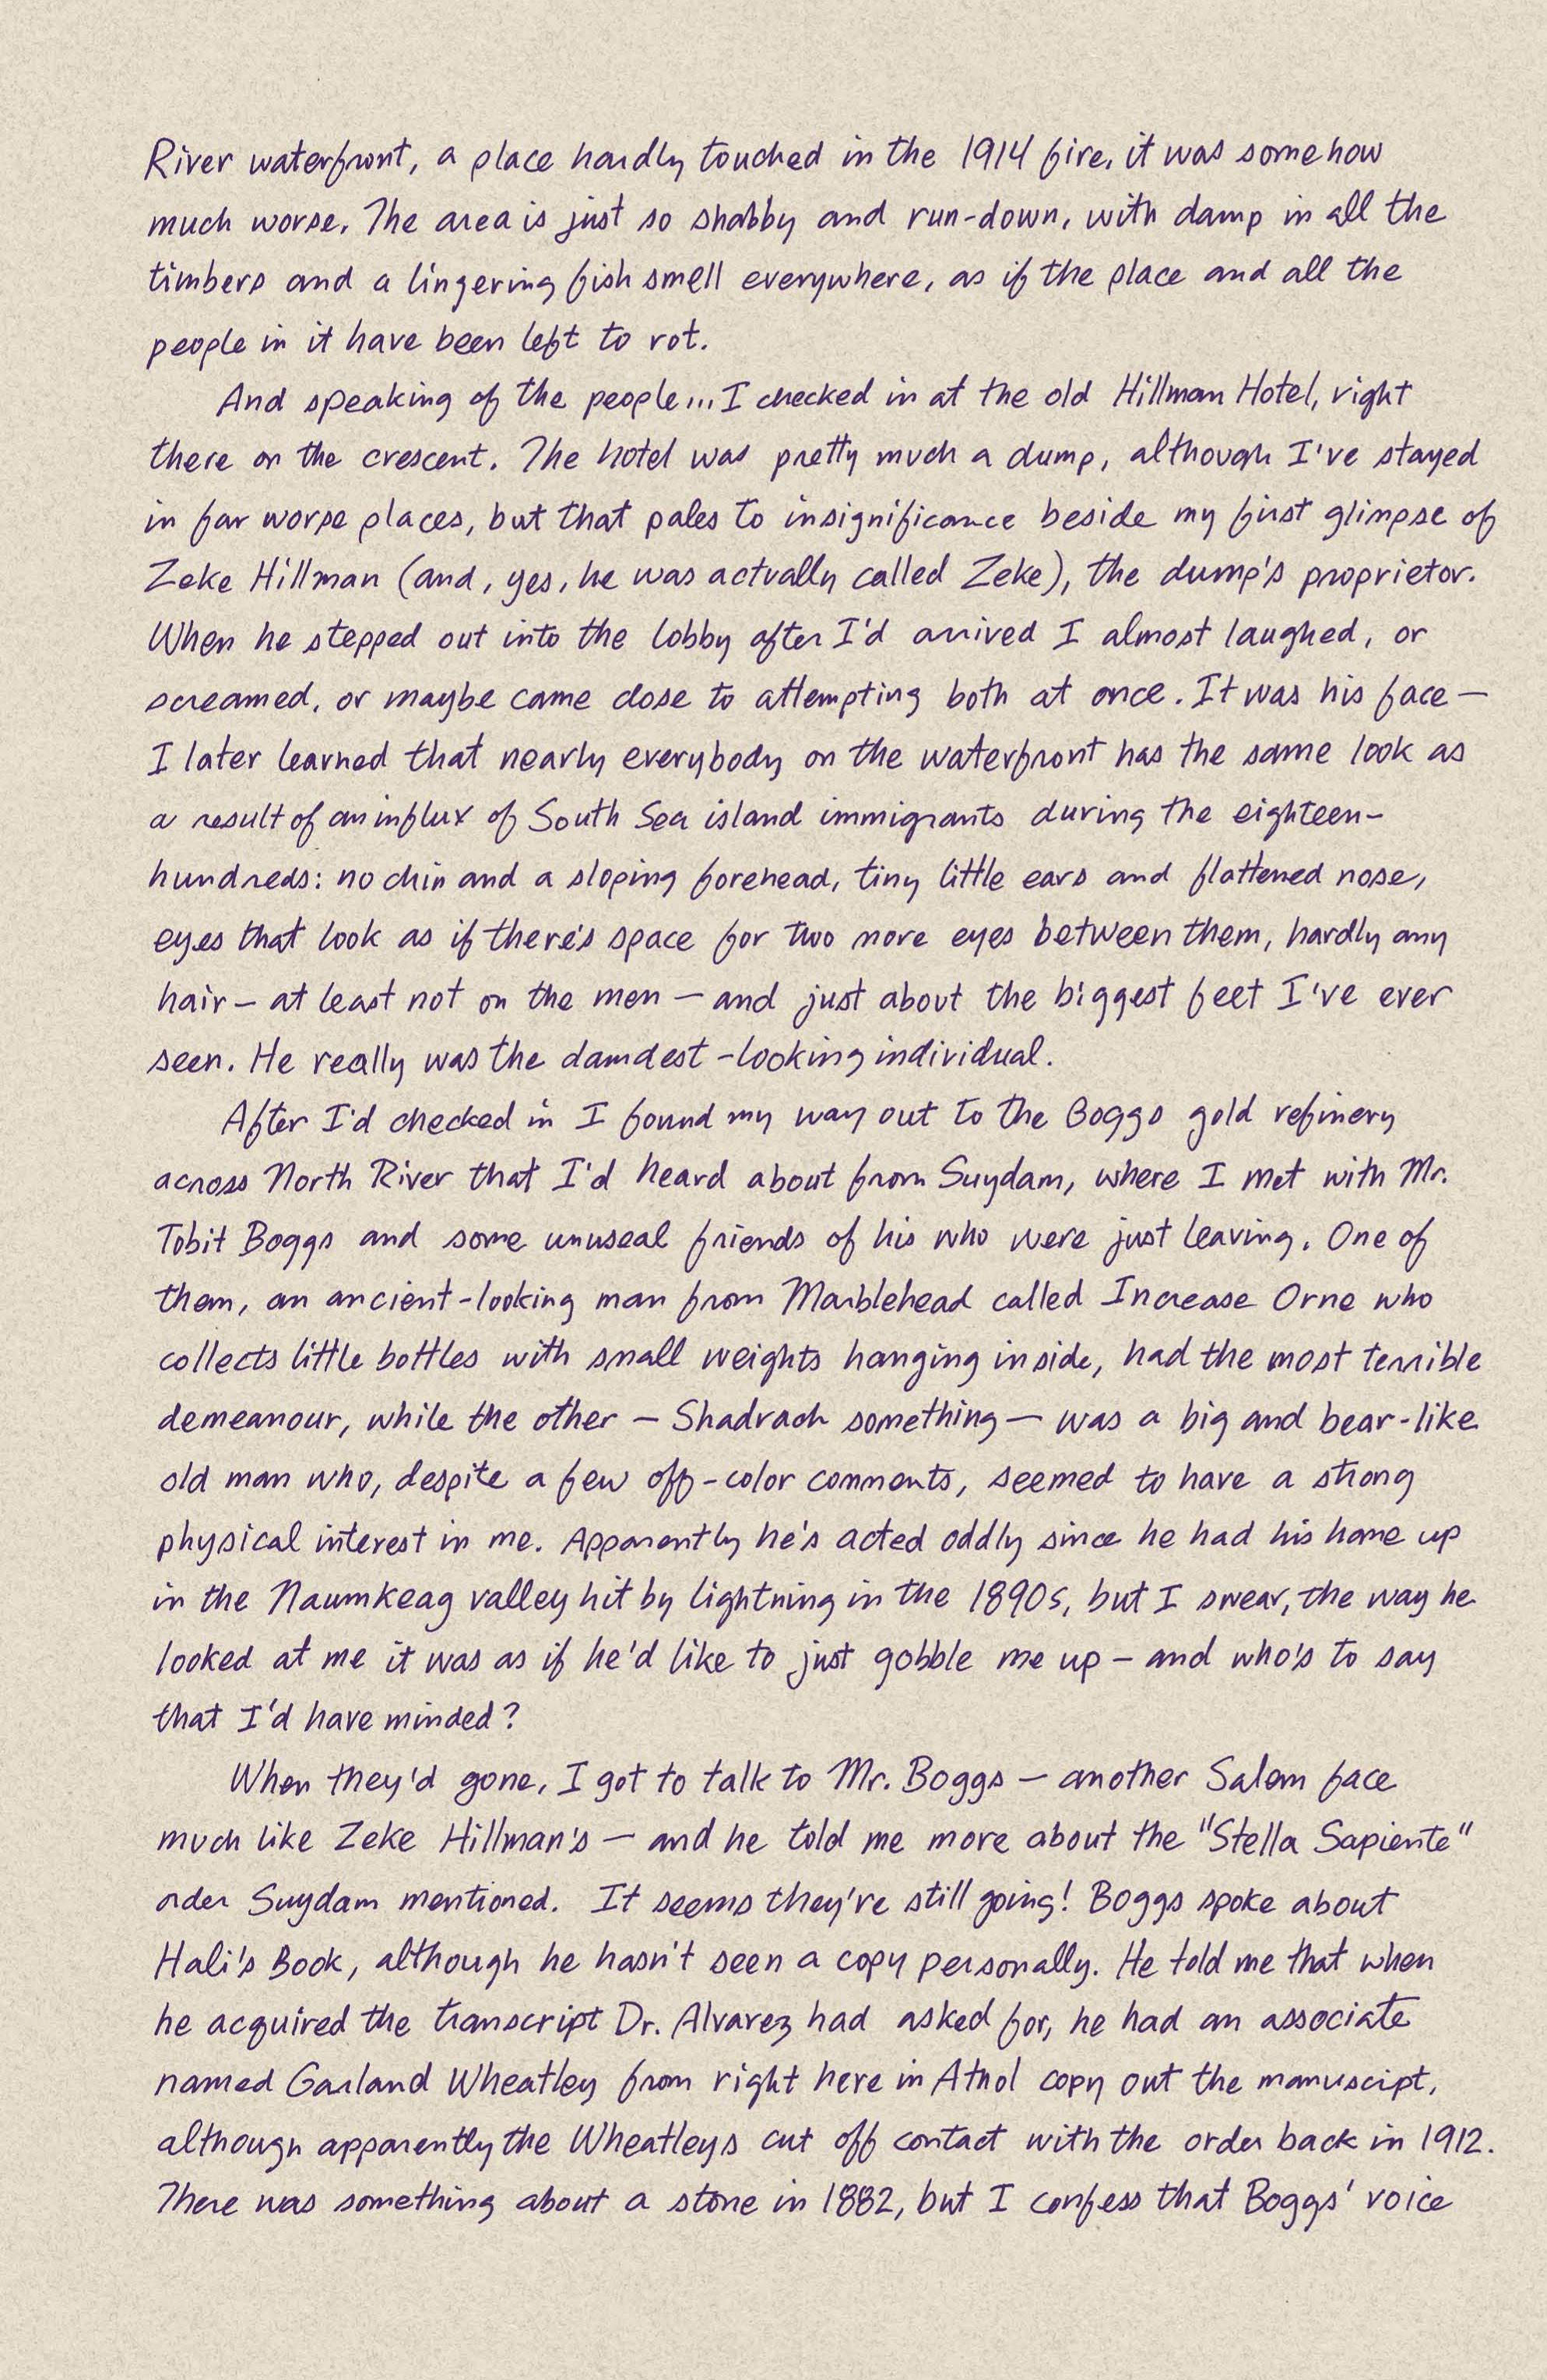 River waterfront, a place hardly touched in the 1914 fire, it was somehow
much worse. The area is just so shabby and run-down, with damp in all the
timbers and a lingering fish smell everywhere, as if the place and all the
people in it have been left to rot.
And speaking of the people... I checked in at the old Hillman Hotel, right
there on the crescent. The hotel was pretty much a dump, although I've stayed
in far worse places, but that pales to insignificance beside my first glimpse of
Zeke Hillman (and, yes, he was actually called Zeke), the dump's proprietor.
When he stepped out into the lobby after I'd arrived I almost laughed, or
screamed, or maybe came close to attempting both at once. It was his face —
I later learned that nearly everybody on the waterfront has the same look as
a result of an influx of South Sea island immigrants during the eighteen-
hundreds: no chin and a sloping forehead, tiny little ears and flattened nose,
eyes that look as if there's space for two more eyes between them, hardly any
hair — at least not on the men — and just about the biggest feet I've ever
seen. He really was the damdest-looking individual.
After I'd checked in I found my way out to the Boggs gold refinery
across North River that I'd heard about from Suydam, where I met with Mr.
Tobit Boggs and some unuseal friends of his who were just leaving. One of
them, an ancient-looking man from Marblehead called Increase Orne who
collects little bottles with small weights hanging inside, had the most terrible
demeanour, while the other — Shadrach something — was a big and bear-like
old man who, despite a few off-color comments, seemed to have a strong
physical interest in me. Apparently he's acted oddly since he had his home up
in the Naumkeag valley hit by lightning in the 1890s, but I swear, the way he
looked at me it was as if he'd like to just gobble me up — and who's to say
that I'd have minded?
When they'd gone, I got to talk to Mr. Boggs — another Salem face
much like Zeke Hillman's — and he told me more about the "Stella Sapiente"
order Suydam mentioned. It seems they're still going! Boggs spoke about
Hali's Book, although he hasn't seen a copy personally. He told me that when
he acquired the transcript Dr. Alvarez had asked for, he had an associate
named Garland Wheatley from right here in Athol copy out the manuscipt,
although apparently the Wheatleys cut off contact with the order back in 1912.
There was something about a stone in 1882, but I confess that Boggs' voice